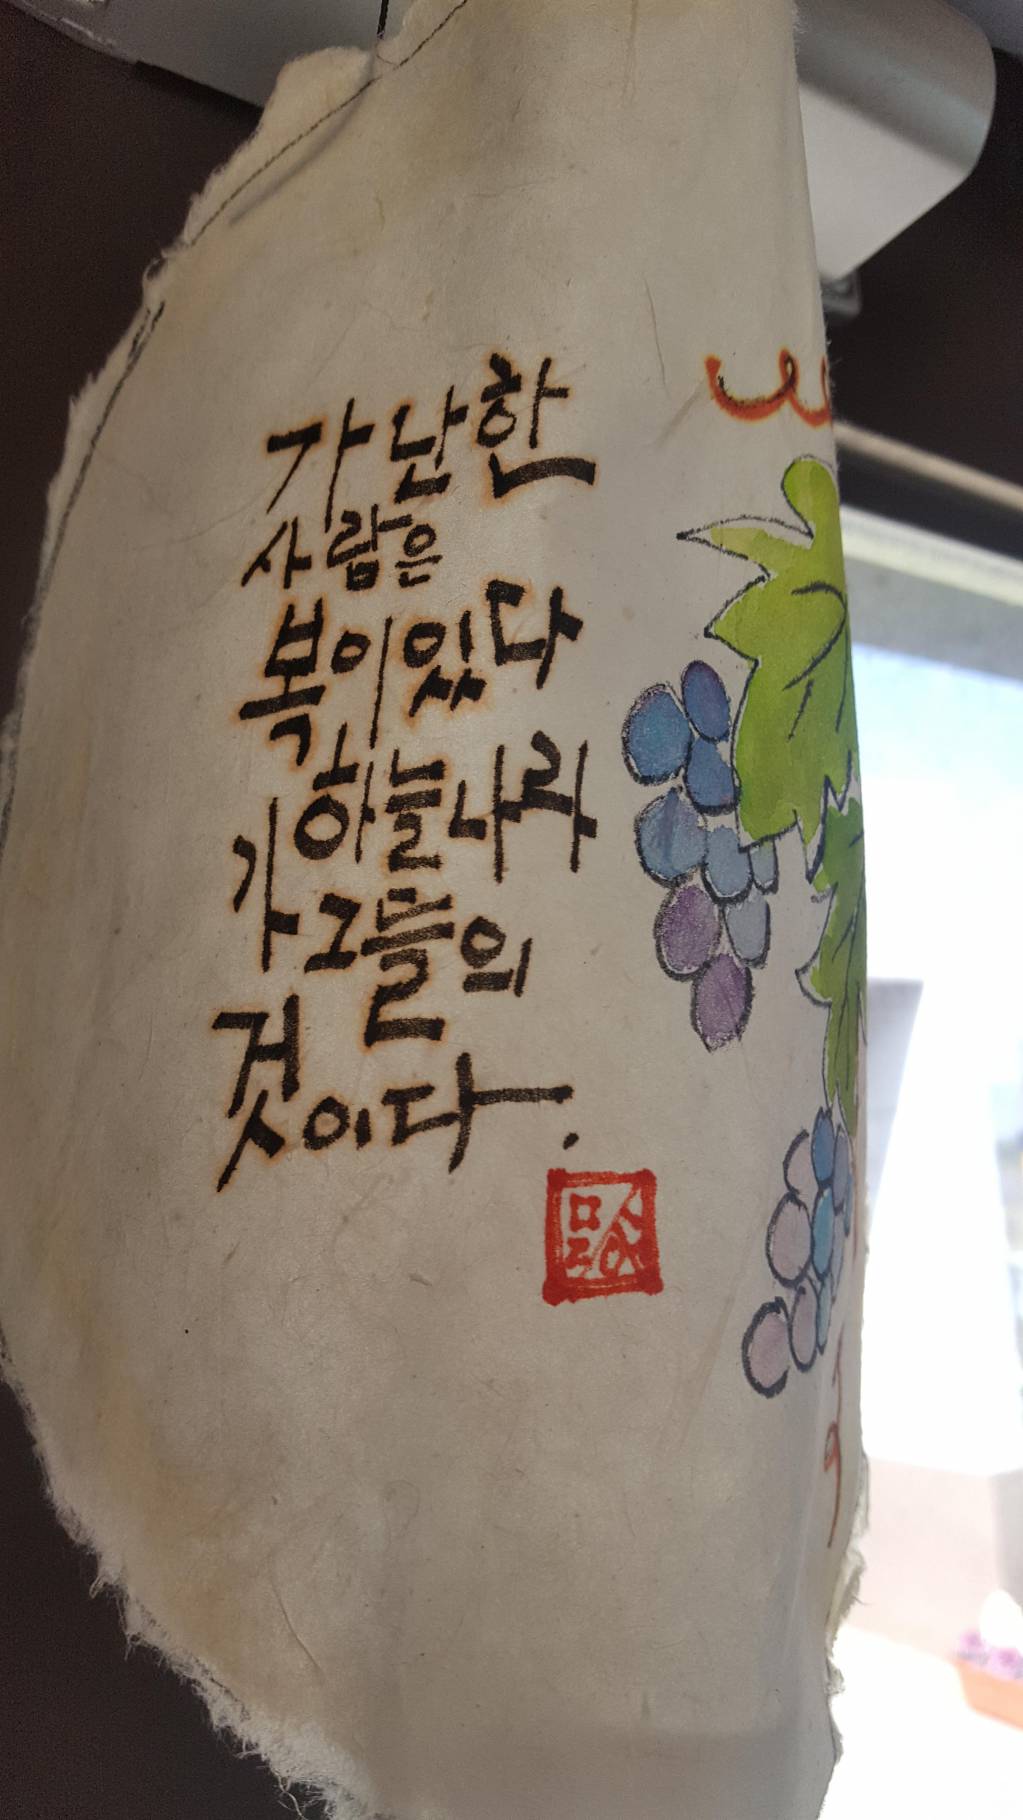 가난한
사람은
복이있다
하늘나라
가 그들의
것이다.